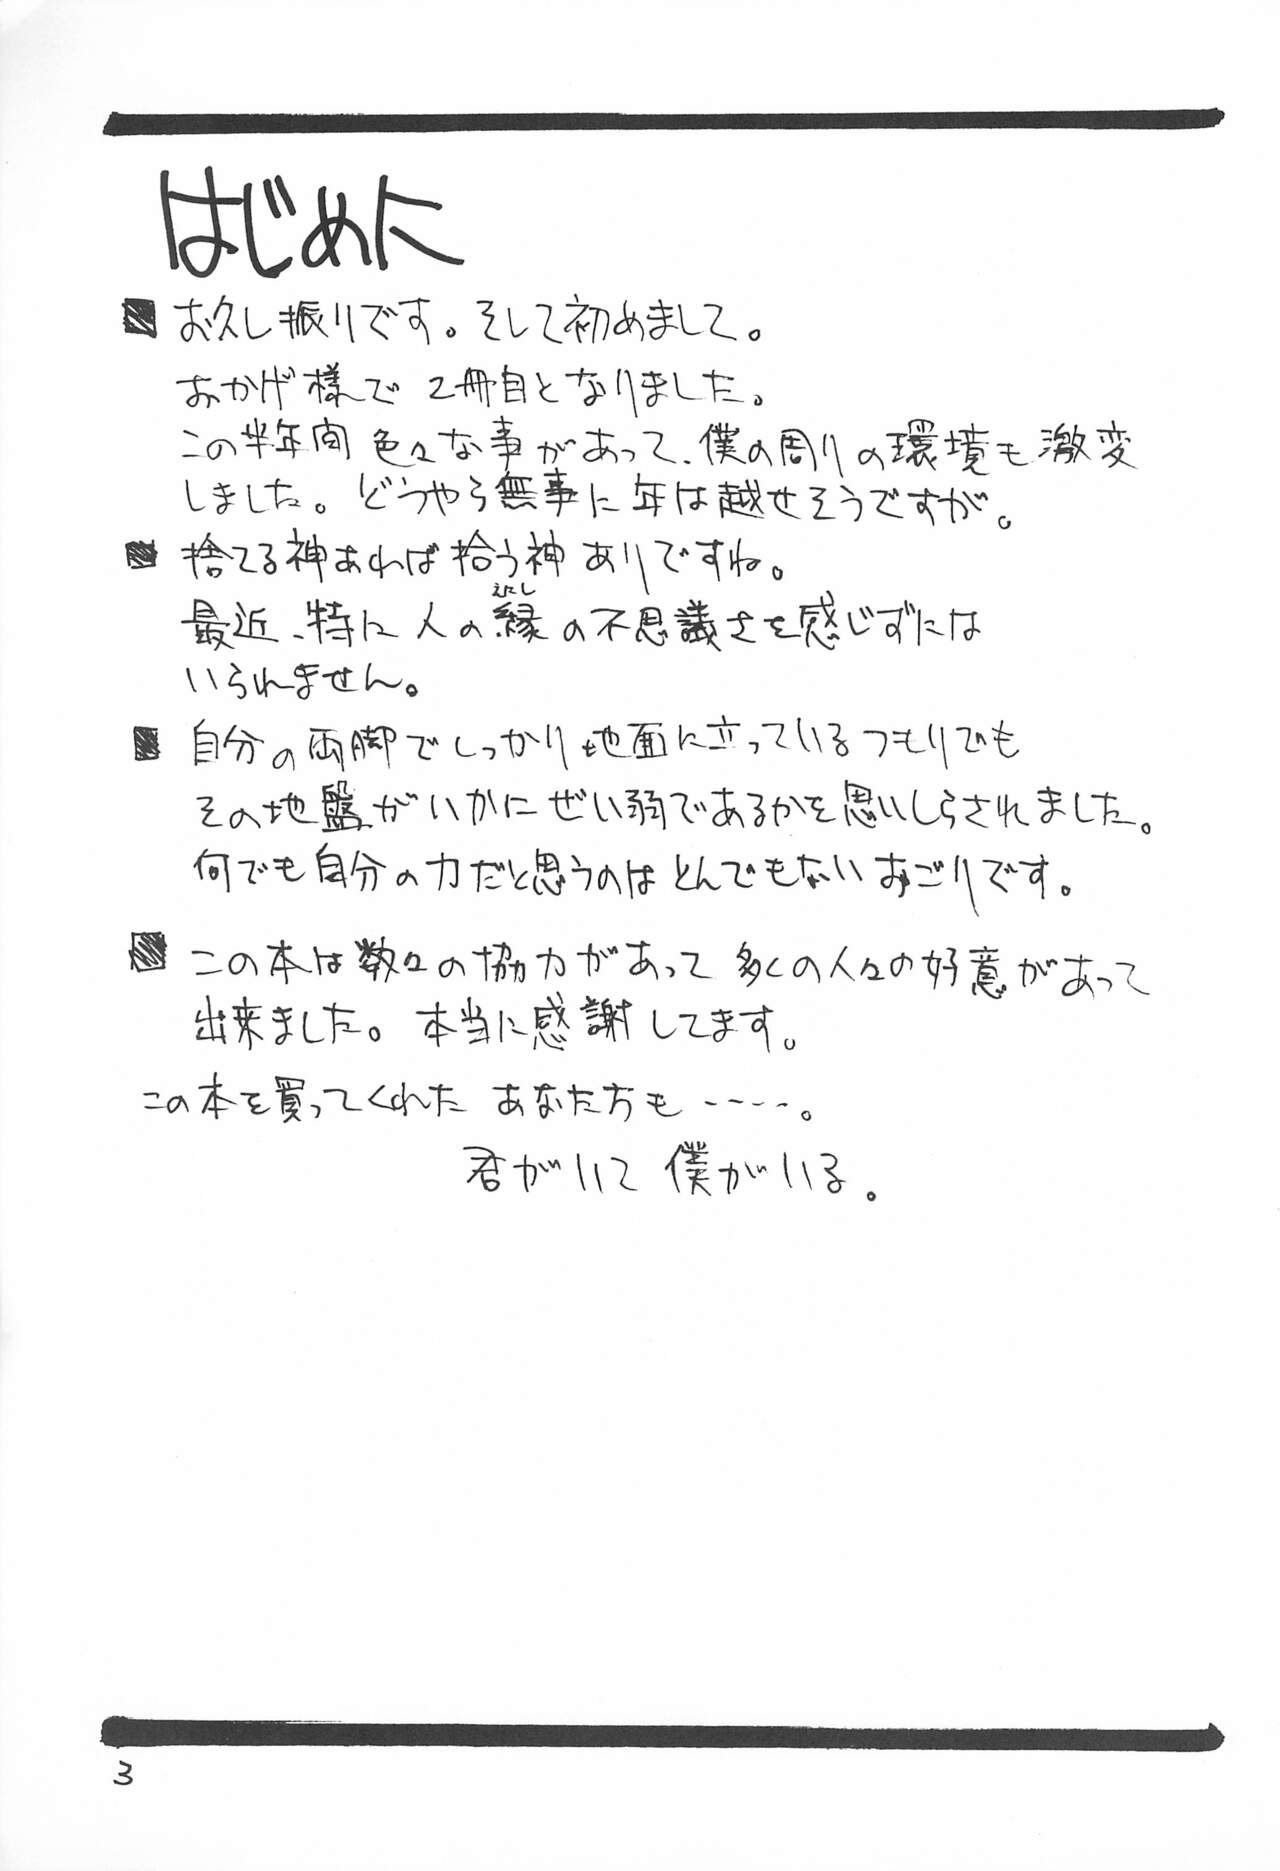 はじめに
お久し振りです。そして初めまして。
おかげ様で2冊目となりました。
この半年間色々な事があって、僕の周りの環境も激変
しました。どうやら無事に年は越せそうですが。
捨てる神あれば拾う神ありですね。
えにし
最近、特に人の縁の不思議さを感じずには
いられません。
自分の両脚でしっかり地面に立っているつもりでも
その地盤がいかにぜい弱であるかを思いしらされました。
何でも自分の力だと思うのはとんでもないおごりです。
この本は数々の協力があって多くの人々の好意があって
出来ました。本当に感謝してます。
この本を買ってくれたあなた方も----。
君がいて僕がいる。
3